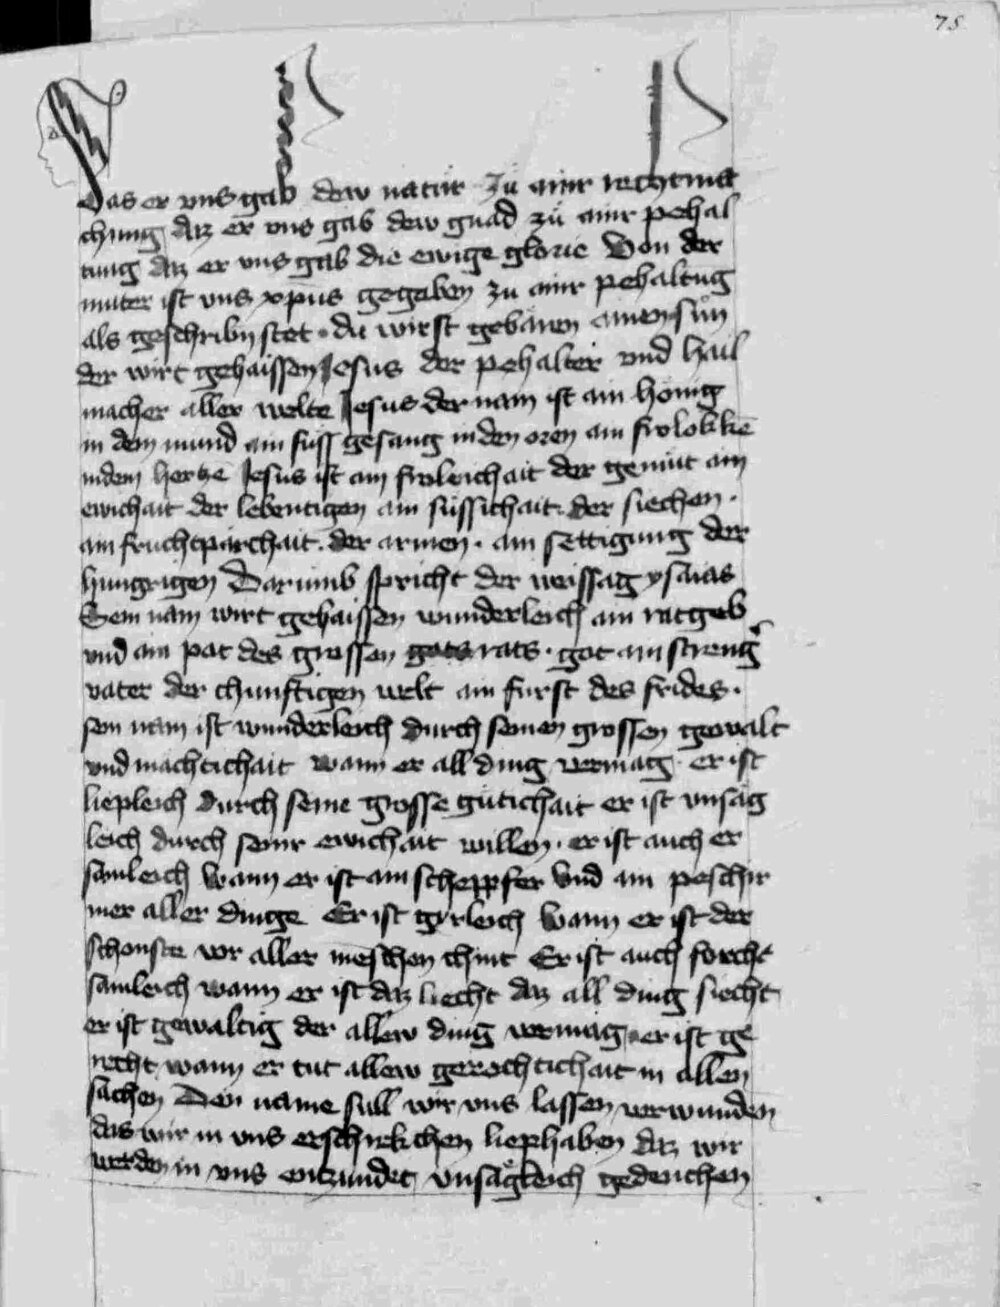 75
Das er vns gab dew natur Zu ainr rechtma
chung daz er vns gab dew gnad zů ainr pehal
tung daz er vns gab die ewige glorie Von der
muter ist vns xp̄us gegeben zu ainr pehaltug
als geschribn stet · du wirst gebaren ainen sůn
der wirt gehaissen Jesus der pehalter vnd hail
macher aller welte Jesus der nam ist ain honig
in dem mund ain suss gesang in den oren ain frolokkē
in dem hertzē Jesus ist ain froleichait der gemüt ain
ewichait der lebentigen ain süssichait · der siechen ·
ain fruchtparchait · der armen · ain settigung der
hungrigen Darumb spricht der weissag ysaias
Sein nam wirt gehaissen wunderleich ain ratgeb
vnd ain pot des grossen rats · got ain streng
vater der chunftigen welt ain fürst des frides ·
sein nam ist wunderleich durch seinen grossen gewalt
vnd machtichait wann er all ding vermag · er ist
liepleich durch seine grosse gütichait er ist vnsäg
leich durch seinr ewichait willen · er ist auch er
samleich Wann er ist ain schepfer Vnd ain peschir
mer aller dinge Er ist gyrleich Wann er ist der
schonste vor aller meschen chint Er ist auch forcht
samleich wann er ist daz liecht daz all ding siecht
er ist gewaltig der allew ding vermag · er ist ge
recht wann er tut allew gerechtichait in allen
sachen Den name sull wir vns lassen verwunden
das wir in vns erschrekchen liephaben daz wir
werden in vns enzundet vnsägleich gedenchen